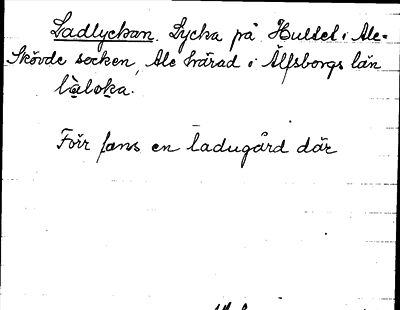 Ladlyckan. Lycka på Hultet i Ale-
Skövde socken, Ale härad i Älfsborgs län
làloka.
Förr fans en ladugård där